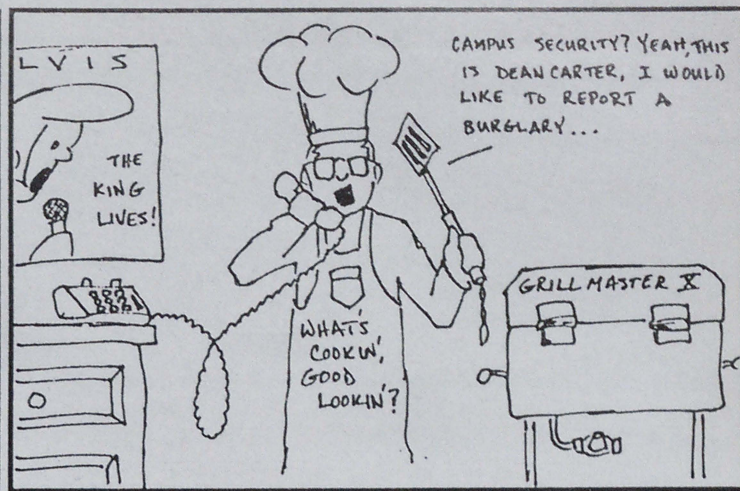 LVIS
THE
KING
LIVES!
CAMPUS SECURITY? YEAH, THIS
IS DEAN CARTER, I WOULD
LIKE TO REPORT A
BURGLARY...
WHAT'S
COOKIN',
GOOD
LOOKIN'?
GRILL MASTER X